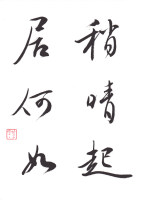 稍晴起
居何如